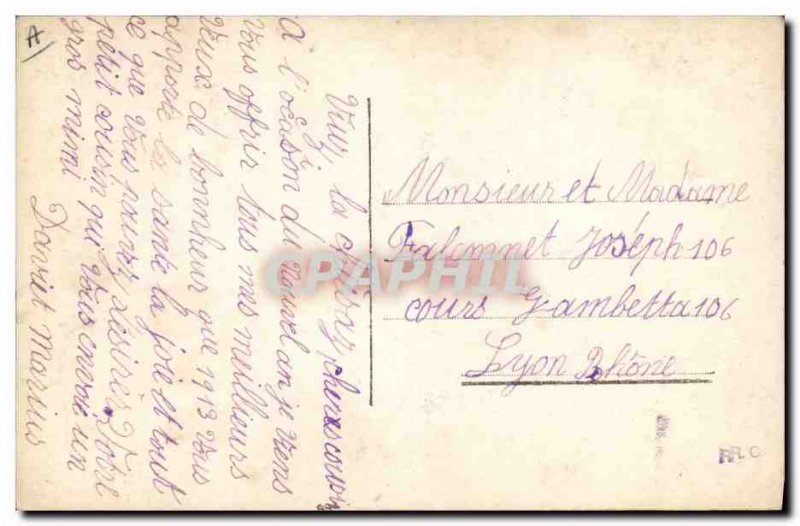 A
Viuz la chiésaz chers cousin
A l'ocason du nouvel an je viens
vous offrir tous mes meillieurs
veux de bonnheur que 1913 vous
apporte la santé la joie et tout
ce que vous pouvez désirer. Votre
petit cousin qui vous envoie un
gros mimi
Daviet Marius
Monsieur et Madame
Falconnet Joséph 106
cours Gambetta 106
Lyon Rhône
CPAPHIL